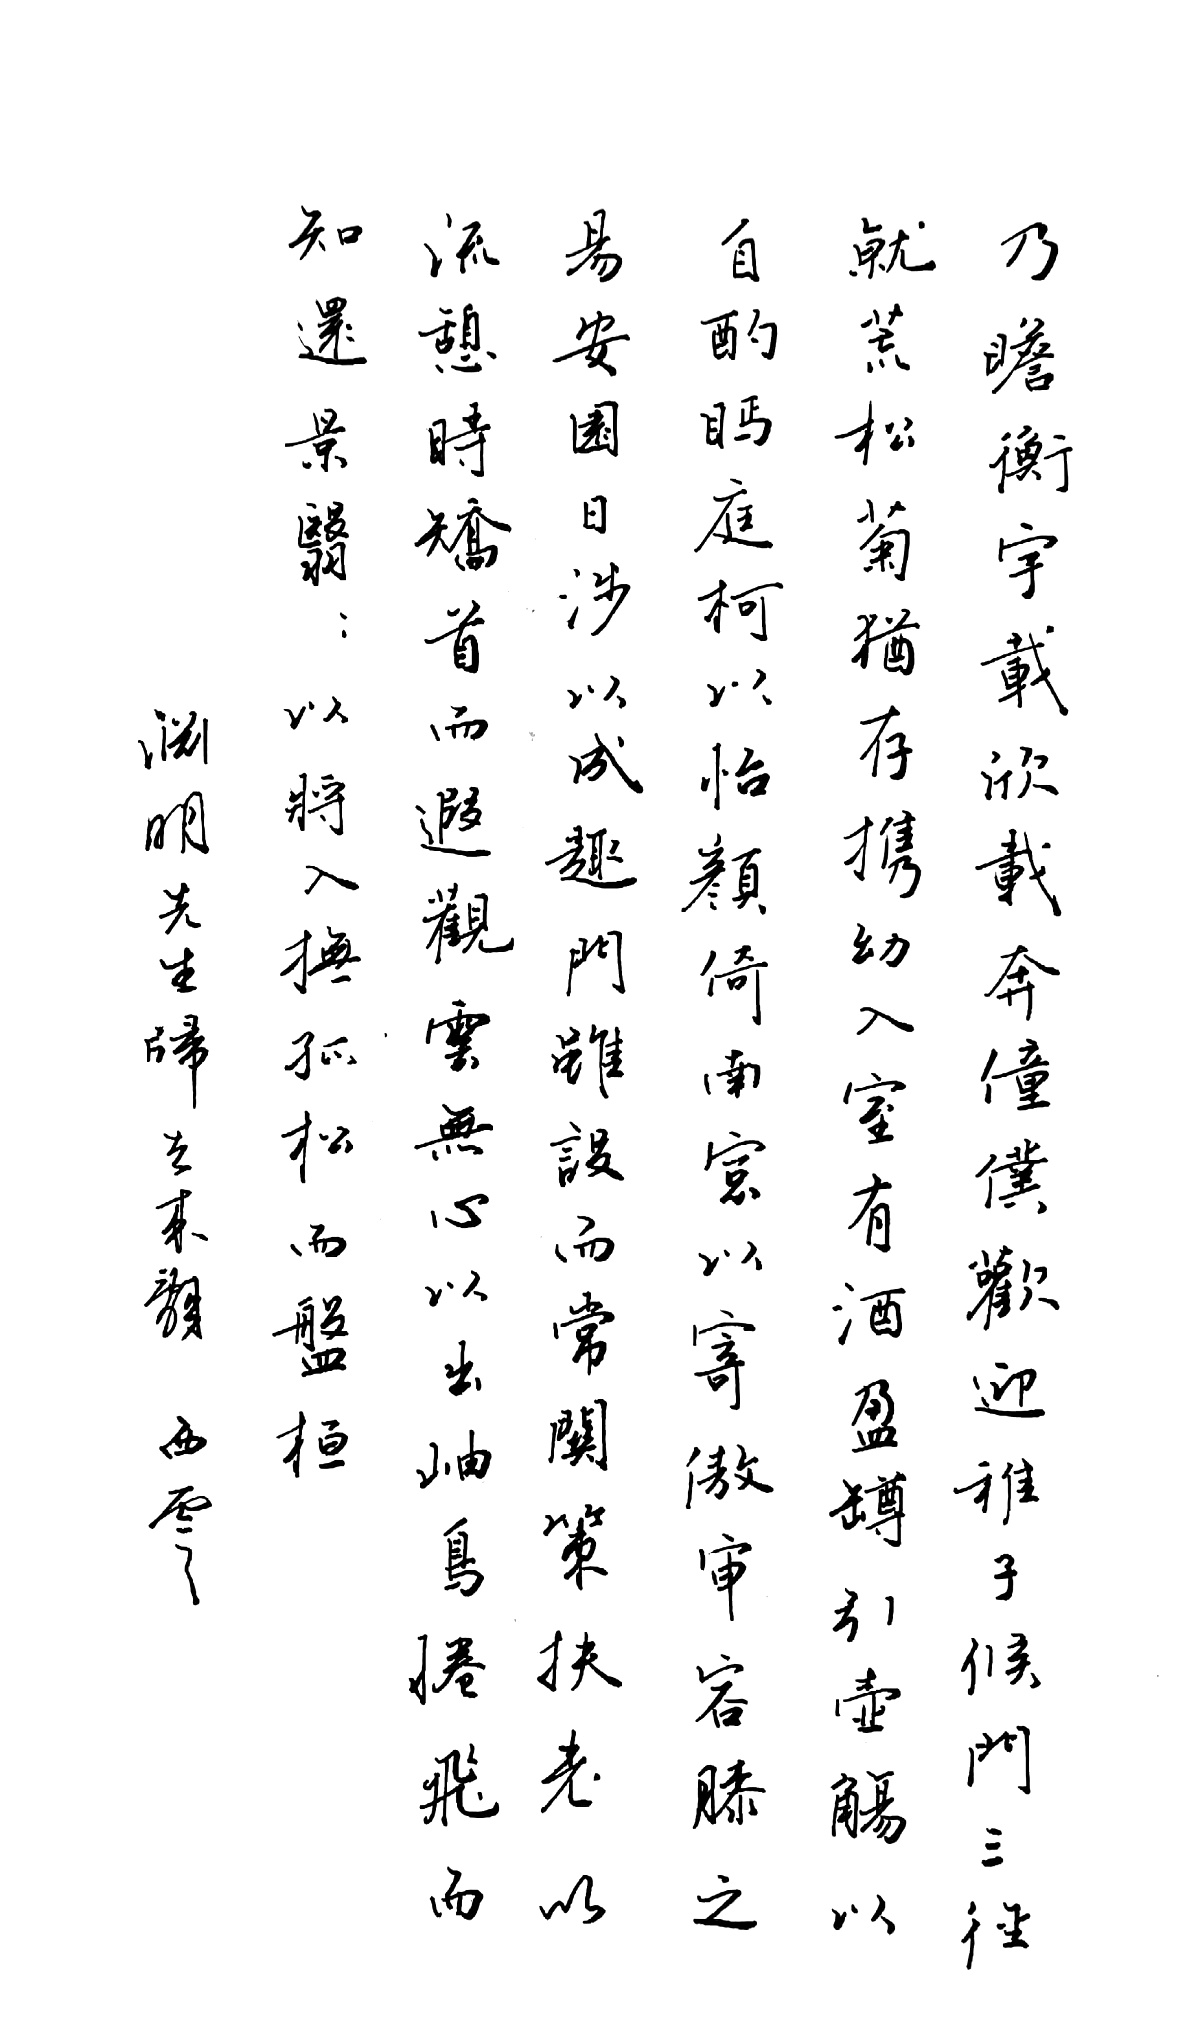 乃瞻衡宇載欣載奔僮僕歡迎稚子候門三徑
就荒松菊猶存攜幼入室有酒盈罇引壺觴以
自酌眄庭柯以怡顏倚南窓以寄傲审容膝之
易安園日涉以成趣門雖設而常關策扶老以
流憩時矯首而遐觀雲無心以出岫鳥惓飛而
知還景翳:以將入撫孤松而盤桓
淵明先生歸去來辭 西雲